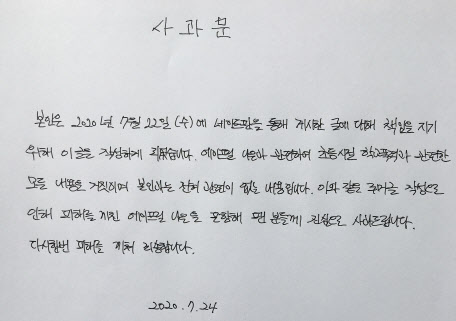 사 과 문
본인은 2020년 7월 22일 (수)에 네이트판을 통해 게시한 글에 대해 책임을 지기
위해 이 글을 작성하게 되었습니다. 에이프릴 나은과 관련하여 초등시절 학교폭력과 관련한
모든 내용은 거짓이며 본인과는 전혀 관련이 없는 내용입니다. 이와 같은 주머글 작성으로
인해 피해를 끼친 에이프릴 나은을 포함해 팬 분들께 진심으로 사죄드립니다.
다시한번 피해를 끼쳐 죄송합니다.
2020.7.24